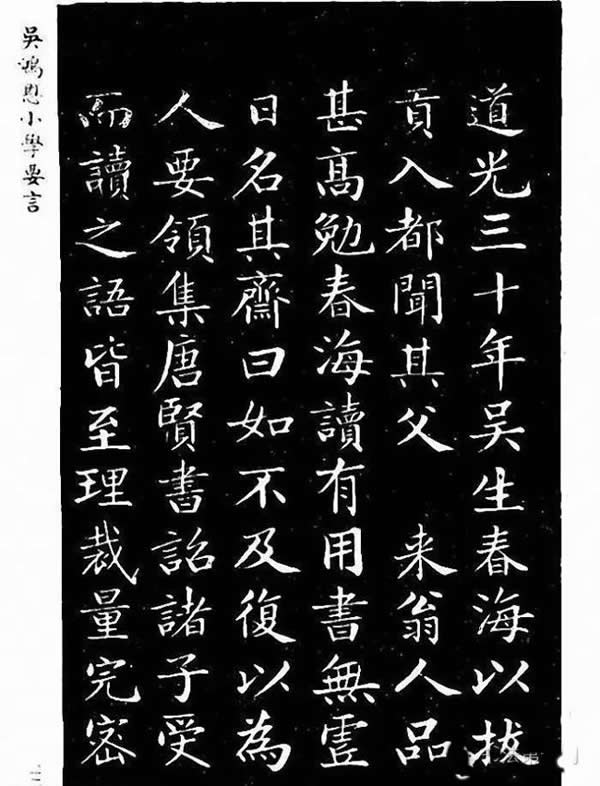 道光三十年吴生春海以拔
貢入都聞其父 来翁人品
甚髙勉春海讀有用書無虛
日名其齋曰如不及復以為
人要領集唐賢書詔諸子受
而讀之語皆至理裁量完密
吳鴻恩小學要言